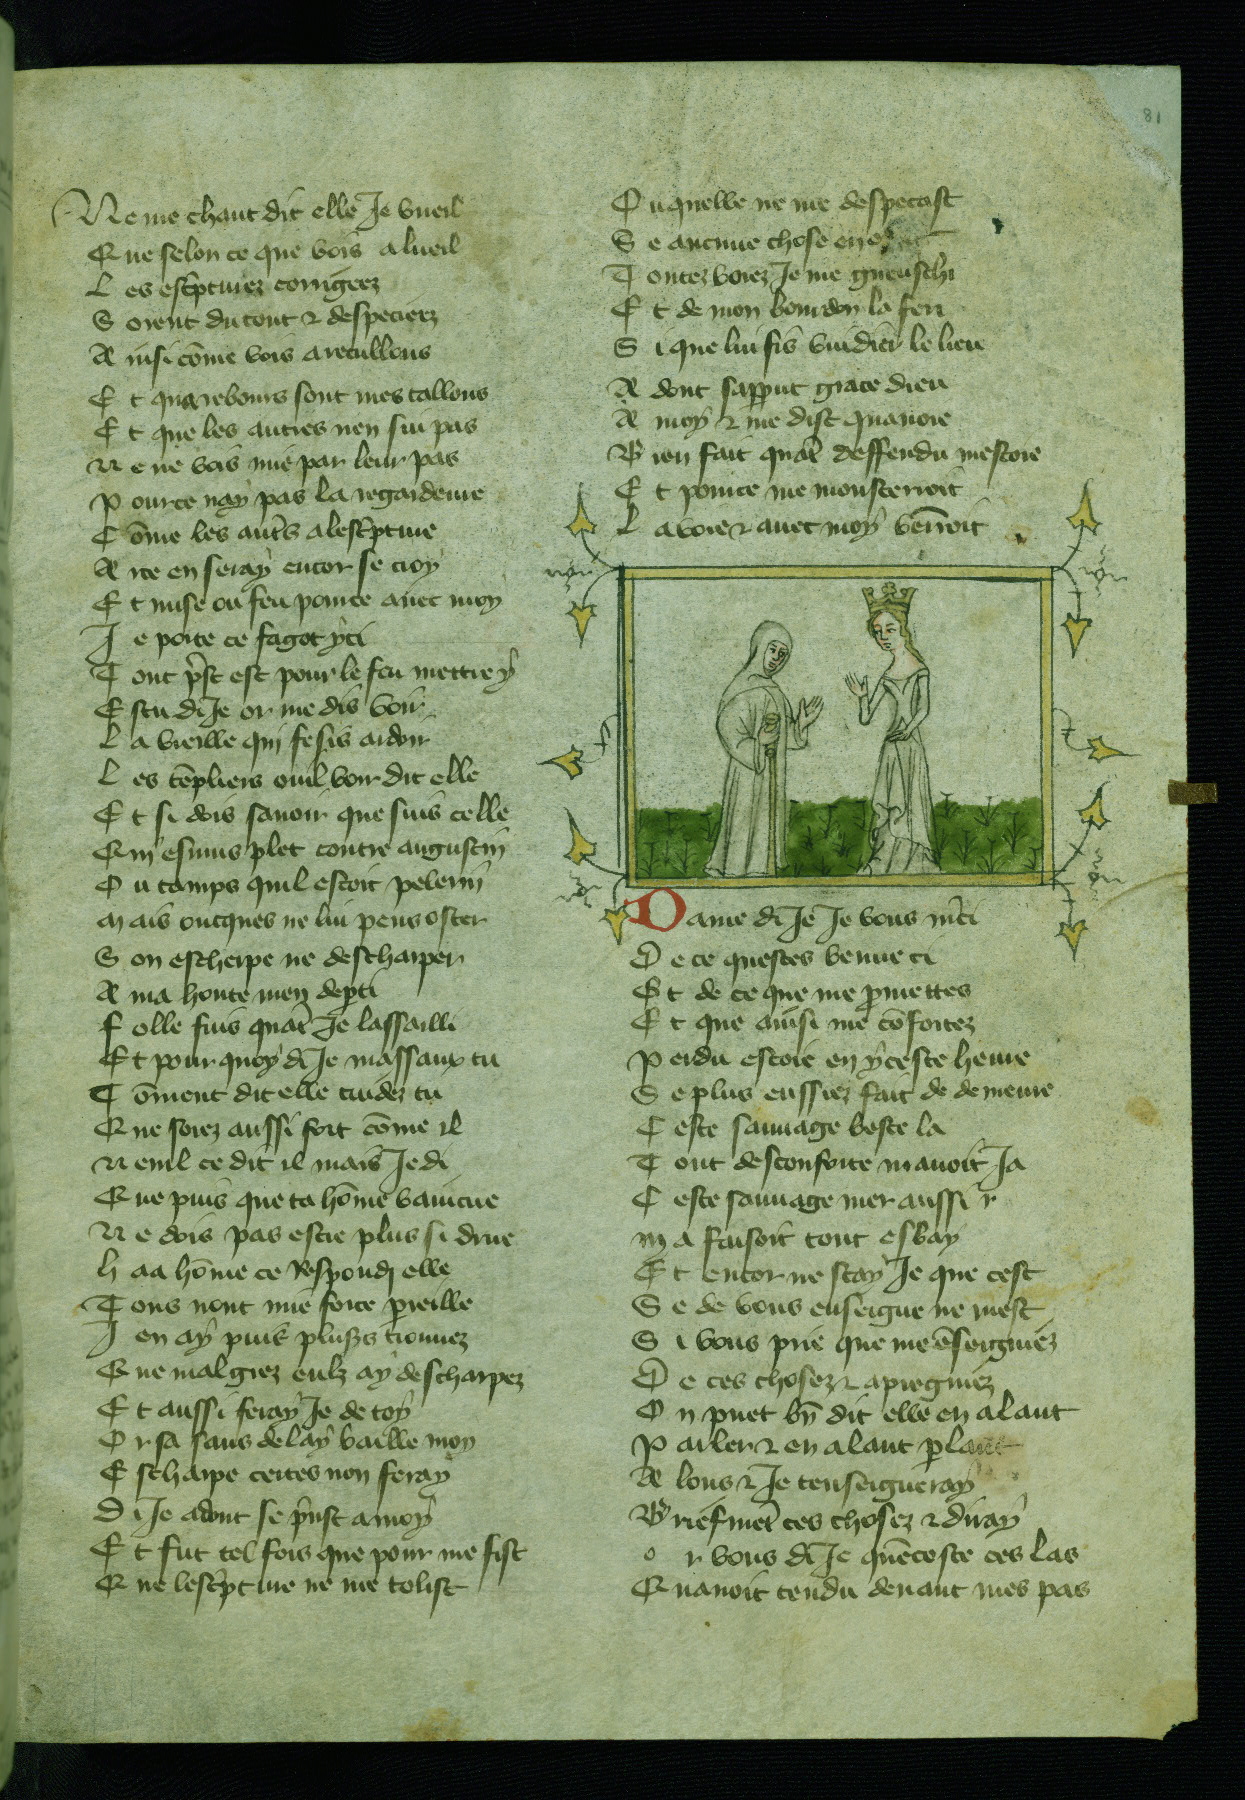 81
Ne me chaut dit elle Je vueil
Que selon ce que vois a lueil
Les escptures corrigees
Soient du tout & despeciees
Ainsi come vois a recullons
Et qua rebours sont mes tallons
Et que les autres nen sui pas
Ne ne vois mie par leur pas
Pource nay pas la regardeure
Come les autrs a lescpture
Arce en seray encor se croy
Et mise ou feu pource avec moy
Je porte ce fagot yci
Tout prst est pour le feu mettre y
Es tu di Je or me dis voir
La vieille qui fesis ardoir
Les tepliers ouil voir dit elle
Et si dois savoir que suis celle
Qui esmus plet contre augustin
Ou tamps quil estoit pelerin
Mais oncques ne lui peus oster
Son escherpe ne descharper
A ma honte men depti
Folle fuis quat Je lassailli
Et pour quoy di Je massaux tu
Coment dit elle cuidez tu
Que soiez aussi fort come il
Nenil ce dit il mais Je di
Que puis que ta home vaincue
Ne dois pas estre plus si drue
Haa home ce Respondi elle
Tous nont mie force preille
Jen ay puis plusrs trouvez
Que malgrez eulz ay descharpez
Et aussi feray Je de toy
Or sa sans delay baille moy
Escharpe certes non feray
Di Je adont se prist a moy
Et fut tel fois que pour me fist
Que lescpture ne me tolist
Ou quelle ne me despecast
Se aucune chose en
Toutez voiez Je me guenschi
Et de mon bourdon la feri
Si que lui fis vuidier le lieu
Adont sapput grace dieu
A moy & me dist quavoie
Bien fait quat deffendu mestoie
Et pource me monsterroit
La voie & avec moy venroit
Dame di Je Je vous mci
De ce questes venue ci
Et de ce que me pmettes
Et que ainsi me cofortez
Perdu estoie en yceste heure
Se plus eussiez fait de demeure
Ceste sauvage beste la
Tout desconforte mavoit Ja
Ceste sauvage mer aussi
Ma faisoit tout esbay
Et encor ne scay Je que cest
Se de vous enseigne ne mest
Si vous prie que me eseigniez
De ces chosez & apregniez
On puet bn dit elle en alant
Parler & en alant plant
Alons & Je tenseigneray
Briefmet ces chosez & diray
Or vous di Je queceste ces las
Quavoit tendu devant mes pas